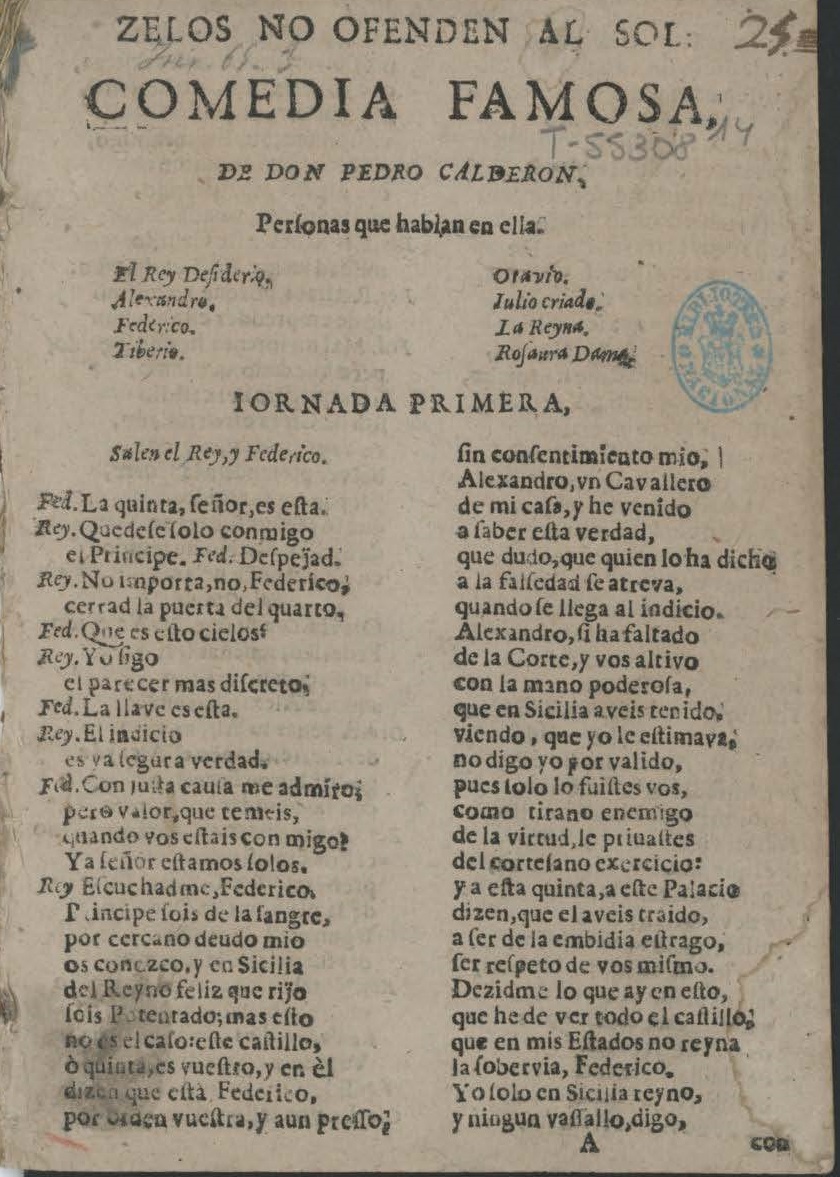 ZELOS NO OFENDEN AL SOL:
25
COMEDIA FAMOSA,
T-55308 14
DE DON PEDRO CALDERON,
Perſonas que hablan en ella.
El Rey Deſiderio,
Alexandro,
Federico.
Tiberio.
Otavio.
Julio criado.
La Reyna.
Roſaura Dama.
BIBLIOTECA NACIONAL
IORNADA PRIMERA,
Salen el Rey, y Federico.
Fed. La quinta, ſeñor, es eſta.
Rey. Quedeſe ſolo conmigo
el Principe. Fed. Deſpejad.
Rey. No importa, no, Federico;
cerrad la puerta del quarto,
Fed. Que es eſto cielos?
Rey. Yo ſigo
el parecer mas diſcreto;
Fed. La llave es eſta.
Rey. El indicio
es ya ſegura verdad.
Fed. Con juſta cauſa me admiro;
pero valor, que temeis,
quando vos eſtais con migo?
Ya ſeñor eſtamos ſolos.
Rey Eſcuchadme, Federico,
Principe ſois de la ſangre,
por cercano deudo mio
os conozco, y en Sicilia
del Reyno feliz que rijo
ſois Potentado; mas eſto
no es el caſo: eſte caſtillo,
ò quinta, es vueſtro, y en èl
dizen que eſtà Federico,
por orden vueſtra, y aun preſſo;
ſin conſentimiento mio,
Alexandro, vn Cavallero
de mi caſa, y he venido
a ſaber eſta verdad,
que dudo, que quien lo ha dicho
a la falſedad ſe atreva,
quando ſe llega al indicio.
Alexandro, ſi ha faltado
de la Corte, y vos altivo
con la mano poderoſa,
que en Sicilia aveis tenido,
viendo, que yo le eſtimava,
no digo yo por valido,
pues ſolo lo fuiſtes vos,
como tirano enemigo
de la virtud, le priuaſtes
del corteſano exercicio:
y a eſta quinta, a eſte Palacio
dizen, que el aveis traido,
a ſer de la embidia eſtrago,
ſer reſpeto de vos miſmo.
Dezidme lo que ay en eſto,
que he de ver todo el caſtillo;
que en mis Eſtados no reyna
la ſobervia, Federico.
Yo ſolo en Sicilia reyno,
y ningun vaſſallo, digo,
A
con